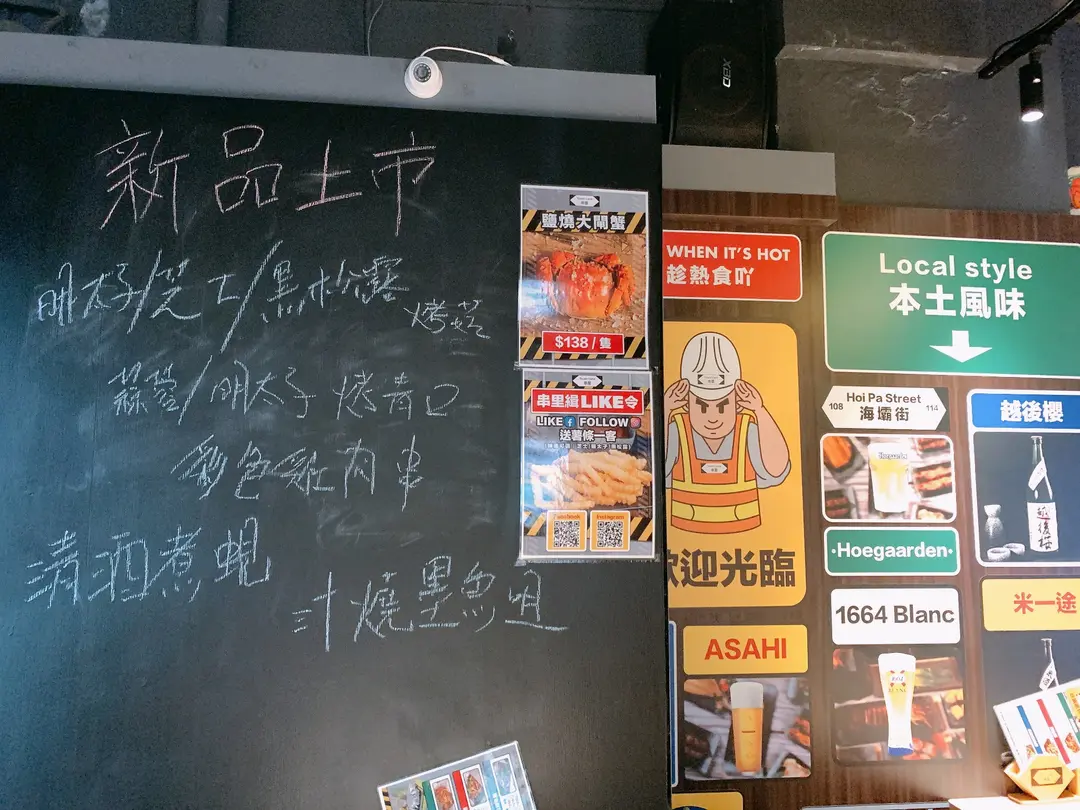 新品上市
明太子/芝士/黑松露
烤菇
蒜蓉/明太子 烤青口
彩色雞肉串
清酒煮蜆
汁燒墨魚咀
鹽燒大閘蟹
$138 / 隻
串里緝LIKE令
LIKE FOLLOW
送薯條一客
WHEN IT'S HOT
趁熱食吖
歡迎光臨
ASAHI
Local style
本土風味
108
Hoi Pa Street
海壩街
114
Hoegaarden
·Hoegaarden·
1664 Blanc
越後櫻
越後桜
米一途